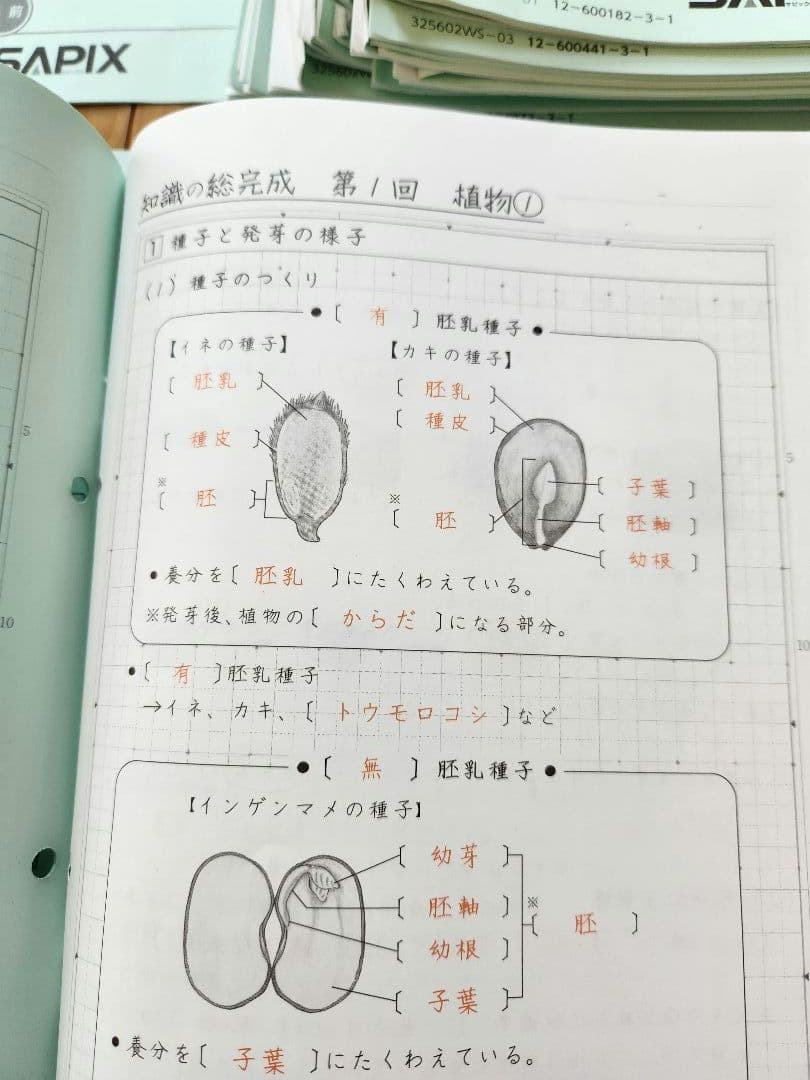 前
SAPIX
12-600182-3-1
325602WS-03 12-600441-3-1
知識の総完成 第1回 植物①
1 種子と発芽の様子
(1) 種子のつくり
●〔 有 〕胚乳種子●
【イネの種子】 【カキの種子】
〔 胚乳 〕 〔 胚乳 〕
〔 種皮 〕 〔 種皮 〕
※〔 胚 〕 ※〔 胚 〕
〔 子葉 〕
〔 胚軸 〕
〔 幼根 〕
●養分を〔 胚乳 〕にたくわえている。
※発芽後、植物の〔 からだ 〕になる部分。
●〔 有 〕胚乳種子
→イネ、カキ、〔 トウモロコシ 〕など
●〔 無 〕胚乳種子●
【インゲンマメの種子】
〔 幼芽 〕
〔 胚軸 〕
〔 幼根 〕
〔 子葉 〕
※〔 胚 〕
●養分を〔 子葉 〕にたくわえている。
5
10
5
10